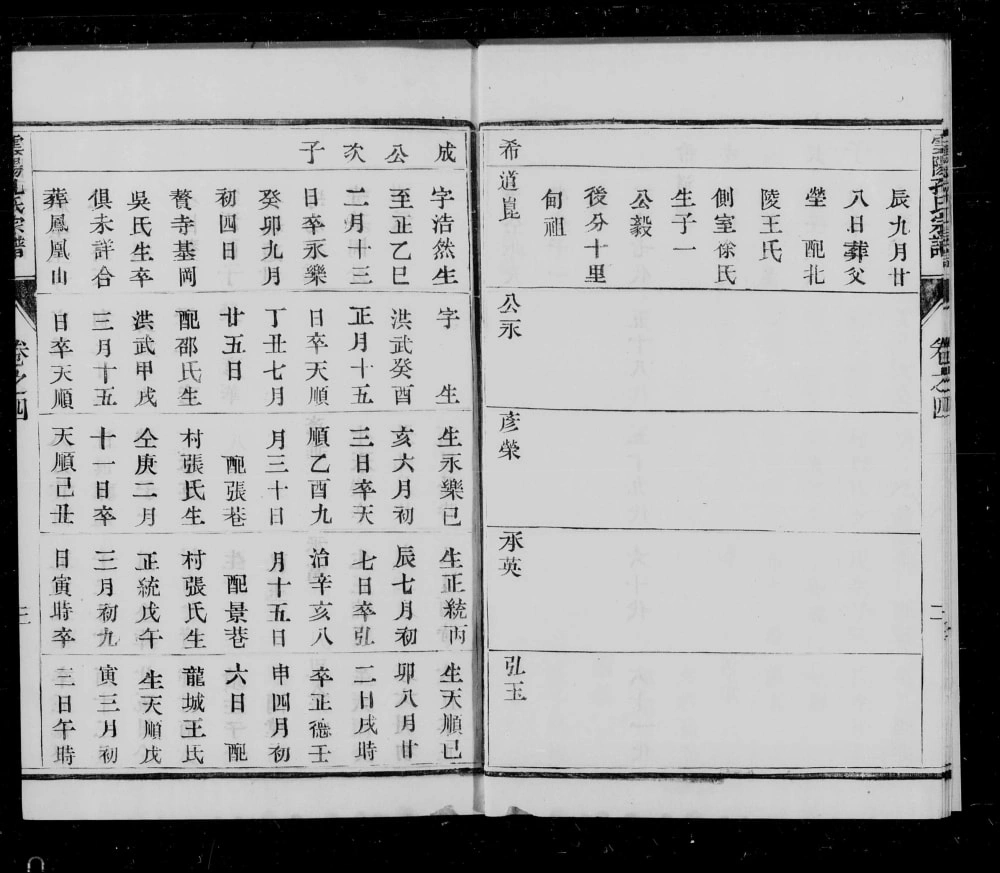 雲陽孔氏宗譜
卷之四
二
辰九月廿
八日葬父
塋 配北
陵王氏
側室徐氏
生子一
公毅
後分十里
甸祖
希道崑
公永
彥榮
承英
弘玉
成公次子
字浩然生
至正乙巳
二月十三
日卒永樂
癸卯九月
初四日
贅寺基岡
吳氏生卒
俱未詳合
葬鳳凰山
字 生
洪武癸酉
正月十五
日卒天順
丁丑七月
廿五日
配邵氏生
洪武甲戌
三月十五
日卒天順
生永樂己
亥六月初
三日卒天
順乙酉九
月三十日
配張巷
村張氏生
仝庚二月
十一日卒
天順己丑
生正統丙
辰七月初
七日卒弘
治辛亥八
月十五日
配景巷
村張氏生
正統戊午
三月初九
日寅時卒
生天順己
卯八月廿
二日戌時
卒正德壬
申四月初
六日 配
龍城王氏
生天順戊
寅三月初
三日午時
卷之四